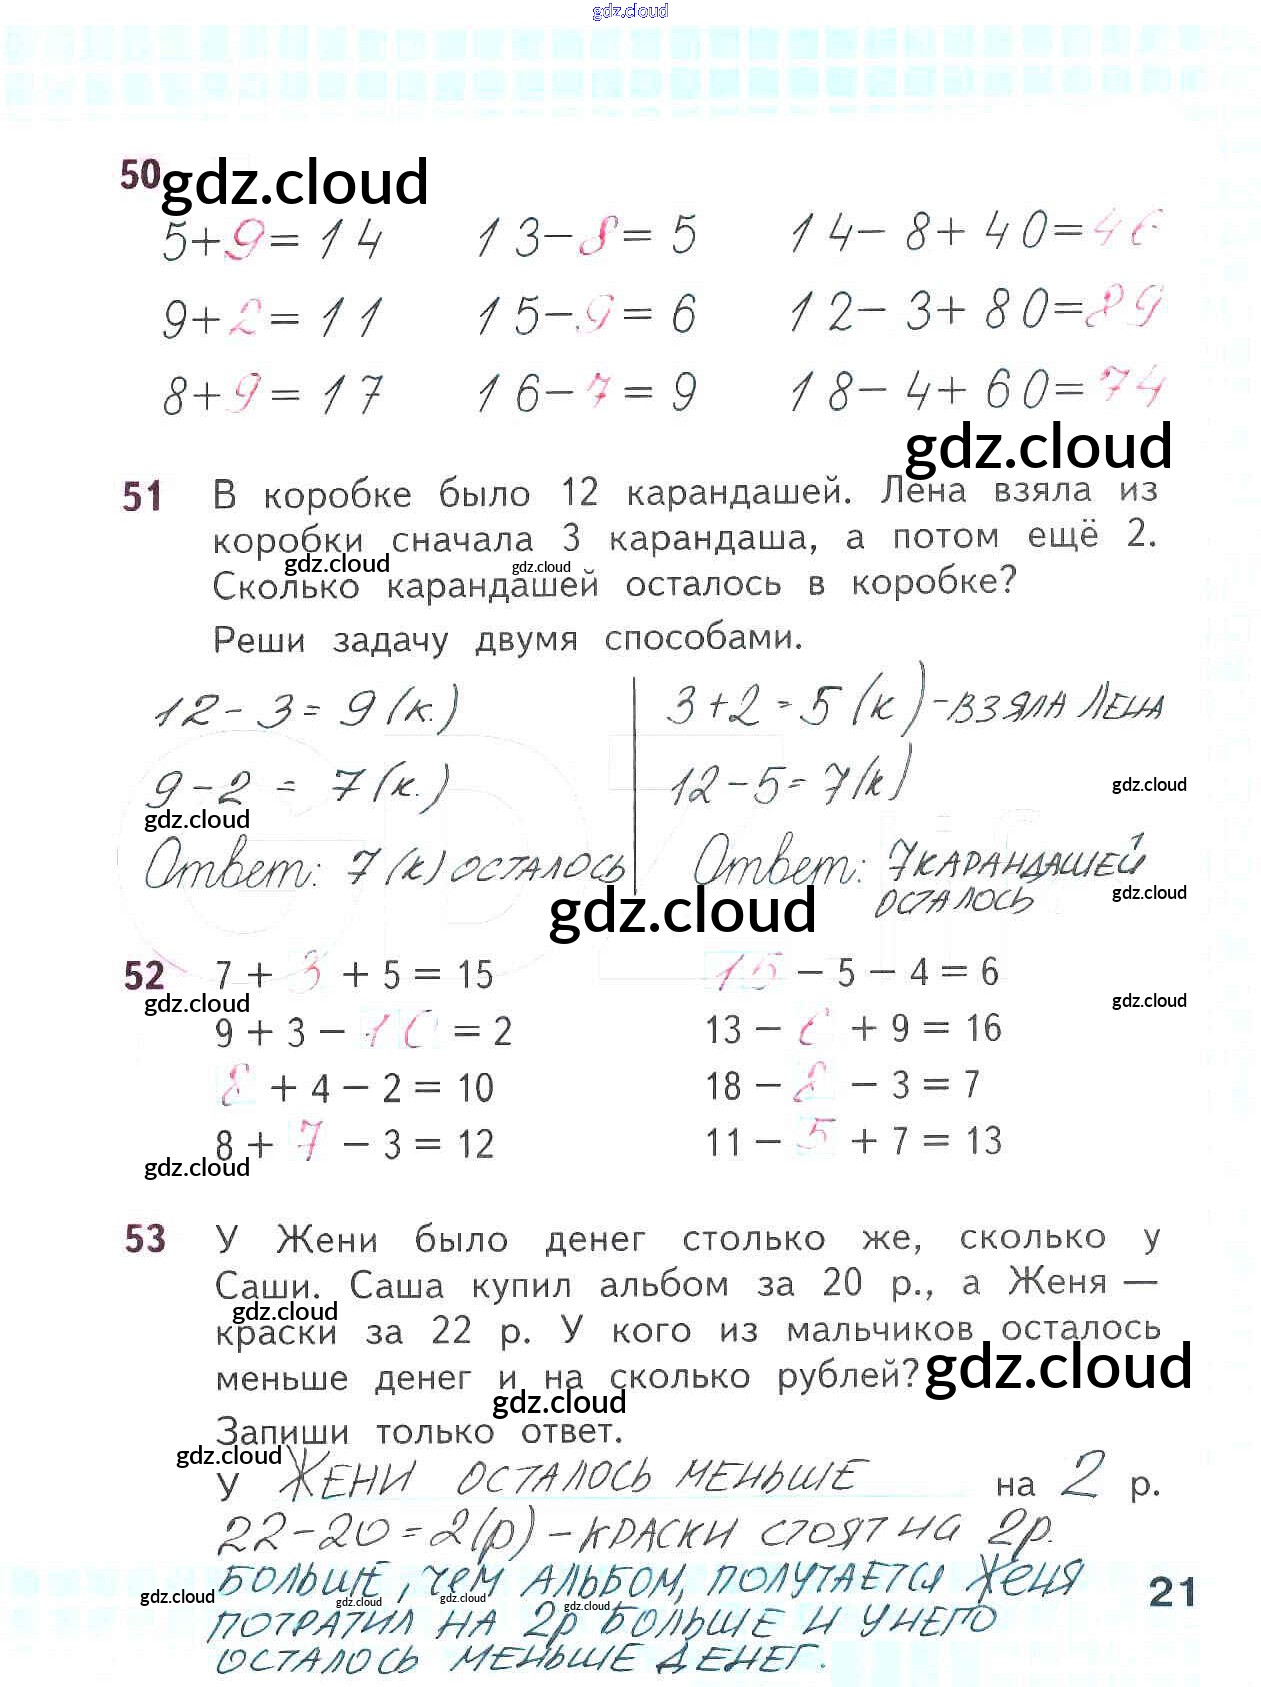 gdz.cloud
50 gdz.cloud
5+9=14 13-8=5 14-8+40=46
9+2=11 15-9=6 12-3+80=89
8+9=17 16-7=9 18-4+60=74
gdz.cloud
51 В коробке было 12 карандашей. Лена взяла из
коробки сначала 3 карандаша, а потом ещё 2.
gdz.cloud gdz.cloud
Сколько карандашей осталось в коробке?
Реши задачу двумя способами.
12-3=9(к.) 3+2=5(к)-ВЗЯЛА ЛЕНА
9-2=7(к.) 12-5=7(к)
gdz.cloud gdz.cloud
Ответ: 7(к) ОСТАЛОСЬ Ответ: 7 КАРАНДАШЕЙ
ОСТАЛОСЬ
gdz.cloud gdz.cloud
52 7 + 3 + 5 = 15 15 − 5 − 4 = 6
gdz.cloud gdz.cloud
9 + 3 − 10 = 2 13 − 6 + 9 = 16
8 + 4 − 2 = 10 18 − 8 − 3 = 7
8 + 7 − 3 = 12 11 − 5 + 7 = 13
gdz.cloud
53 У Жени было денег столько же, сколько у
Саши. Саша купил альбом за 20 р., а Женя —
gdz.cloud
краски за 22 р. У кого из мальчиков осталось
меньше денег и на сколько рублей?
gdz.cloud
gdz.cloud
Запиши только ответ.
gdz.cloud
У ЖЕНИ ОСТАЛОСЬ МЕНЬШЕ на 2 р.
22-20=2(р)-КРАСКИ СТОЯТ НА 2р.
БОЛЬШЕ, чЕМ АЛЬБОМ, ПОЛУЧАЕТСЯ ЖЕНЯ
21
gdz.cloud gdz.cloud gdz.cloud gdz.cloud
ПОТРАТИЛ НА 2р БОЛЬШЕ И У НЕГО
ОСТАЛОСЬ МЕНЬШЕ ДЕНЕГ.